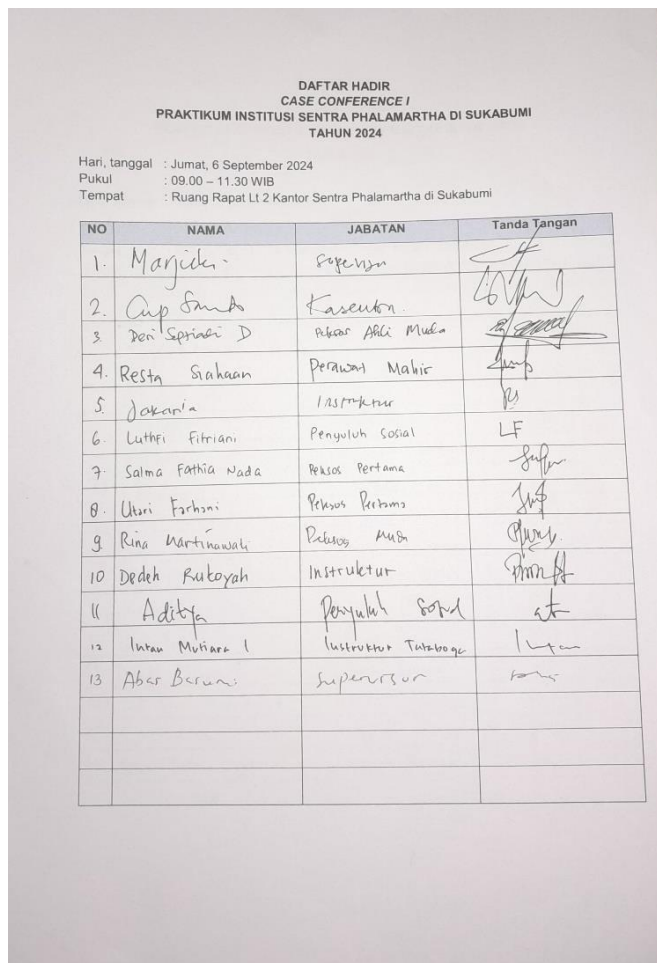 DAFTAR HADIR
CASE CONFERENCE I
PRAKTIKUM INSTITUSI SENTRA PHALAMARTHA DI SUKABUMI
TAHUN 2024
Hari, tanggal : Jumat, 6 September 2024
Pukul : 09.00 – 11.30 WIB
Tempat : Ruang Rapat Lt 2 Kantor Sentra Phalamartha di Sukabumi
NO NAMA JABATAN Tanda Tangan
1.
2. Cup
3. Deri Septiadi D Peksos Ahli Muda
4. Resta Siahaan Perawat Mahir
5. Jakaria Instruktur
6. Luthfi Fitriani Penyuluh Sosial LF
7. Salma Fathia Nada Peksos Pertama
8. Utari Farhani Peksos Pertama
9 Rina Martinawati Peksos Muda
10 Dedeh Rukoyah Instruktur
11 Aditya Penyuluh Sosial
12 Intan Mutiara I Instruktur Tataboga Intan
13 Abar Supervisor